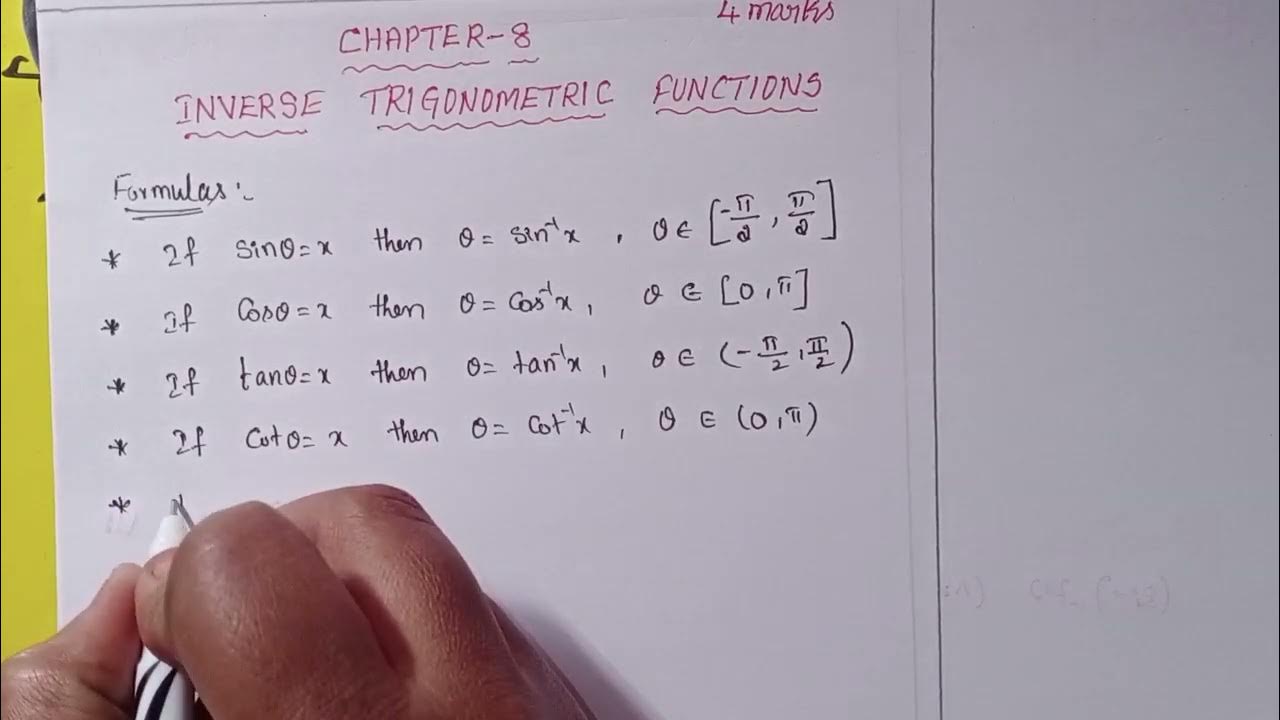 4 marks
CHAPTER-8
INVERSE TRIGONOMETRIC FUNCTIONS
Formulas:-
* If sinθ=x then θ= sin⁻¹x , θ∈ [-π/2 , π/2]
* If Cosθ=x then θ= Cos⁻¹x , θ ∈ [0,π]
* If tanθ=x then θ= tan⁻¹x , θ∈ (-π/2 , π/2)
* If Cotθ= x then θ= Cot⁻¹x , θ ∈ (0,π)
*